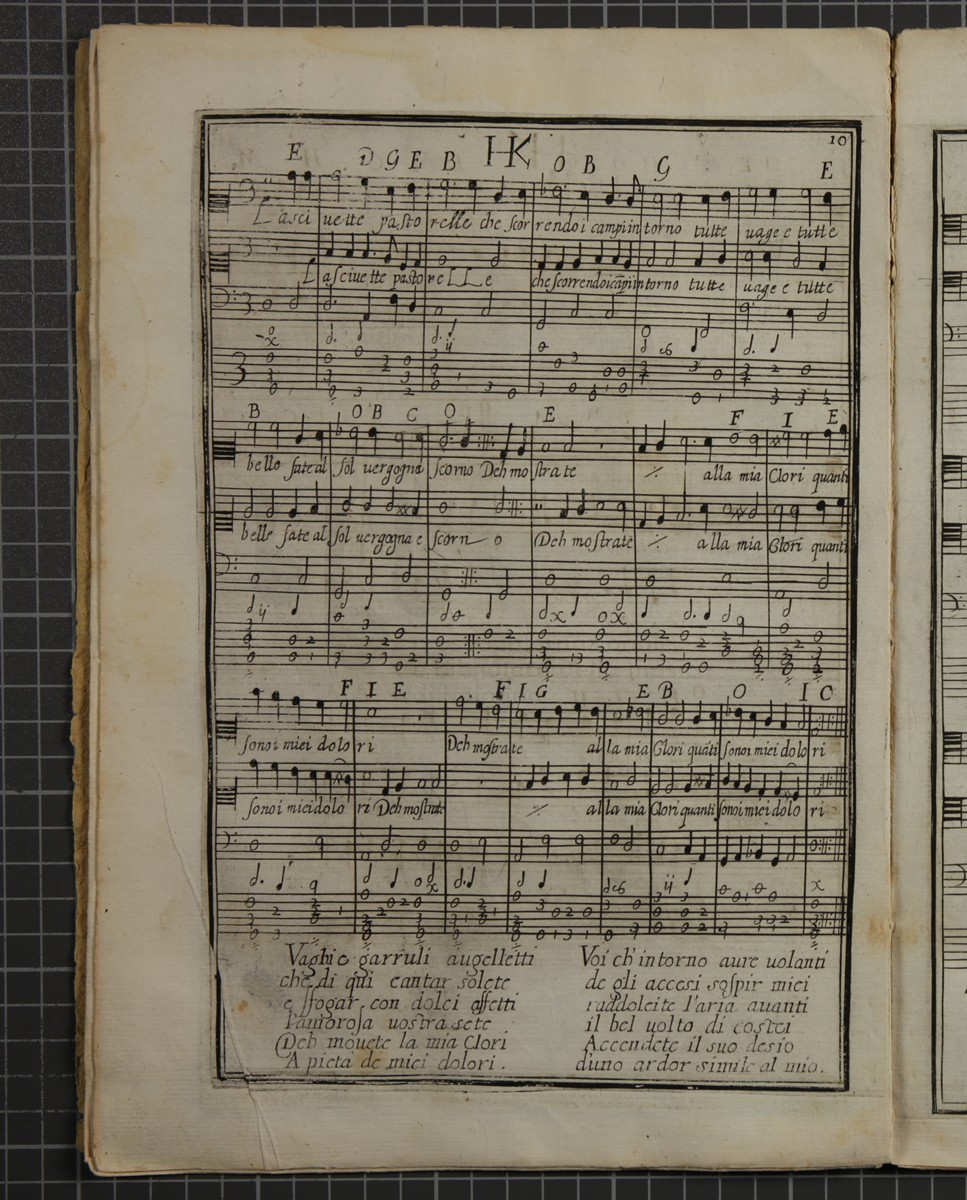 10
E D G E B HK O B G E
Lasci uette pasto relle che scor rendo i campi in torno tutte uage e tutte
Lasciuette pastorelle che scorrendo i cāpi intorno tutte uage e tutte
B O B C O E F I E
belle fate al sol uergogna scorno Deh mo strate alla mia Clori quanti
belle fate al sol uergogna e scorn o Deh mostrate alla mia Clori quanti
F I E F I G E B O I C
sono i miei dolo ri Deh mostrate al la mia Clori quāti sono i miei dolo ri
sono i miei dolo ri Deh mostrate al la mia Clori quanti sono i miei dolo ri
Vaghi e garruli augelletti
che di qui cantar solete
e sfogar con dolci affetti
l'amorosa uostra sete
Deh mouete la mia Clori
A pieta de miei dolori.
Voi ch'intorno aure uolanti
de gli accesi sospir miei
raddolcite l'aria auanti
il bel uolto di costei
Accendete il suo desio
d'uno ardor simile al mio.